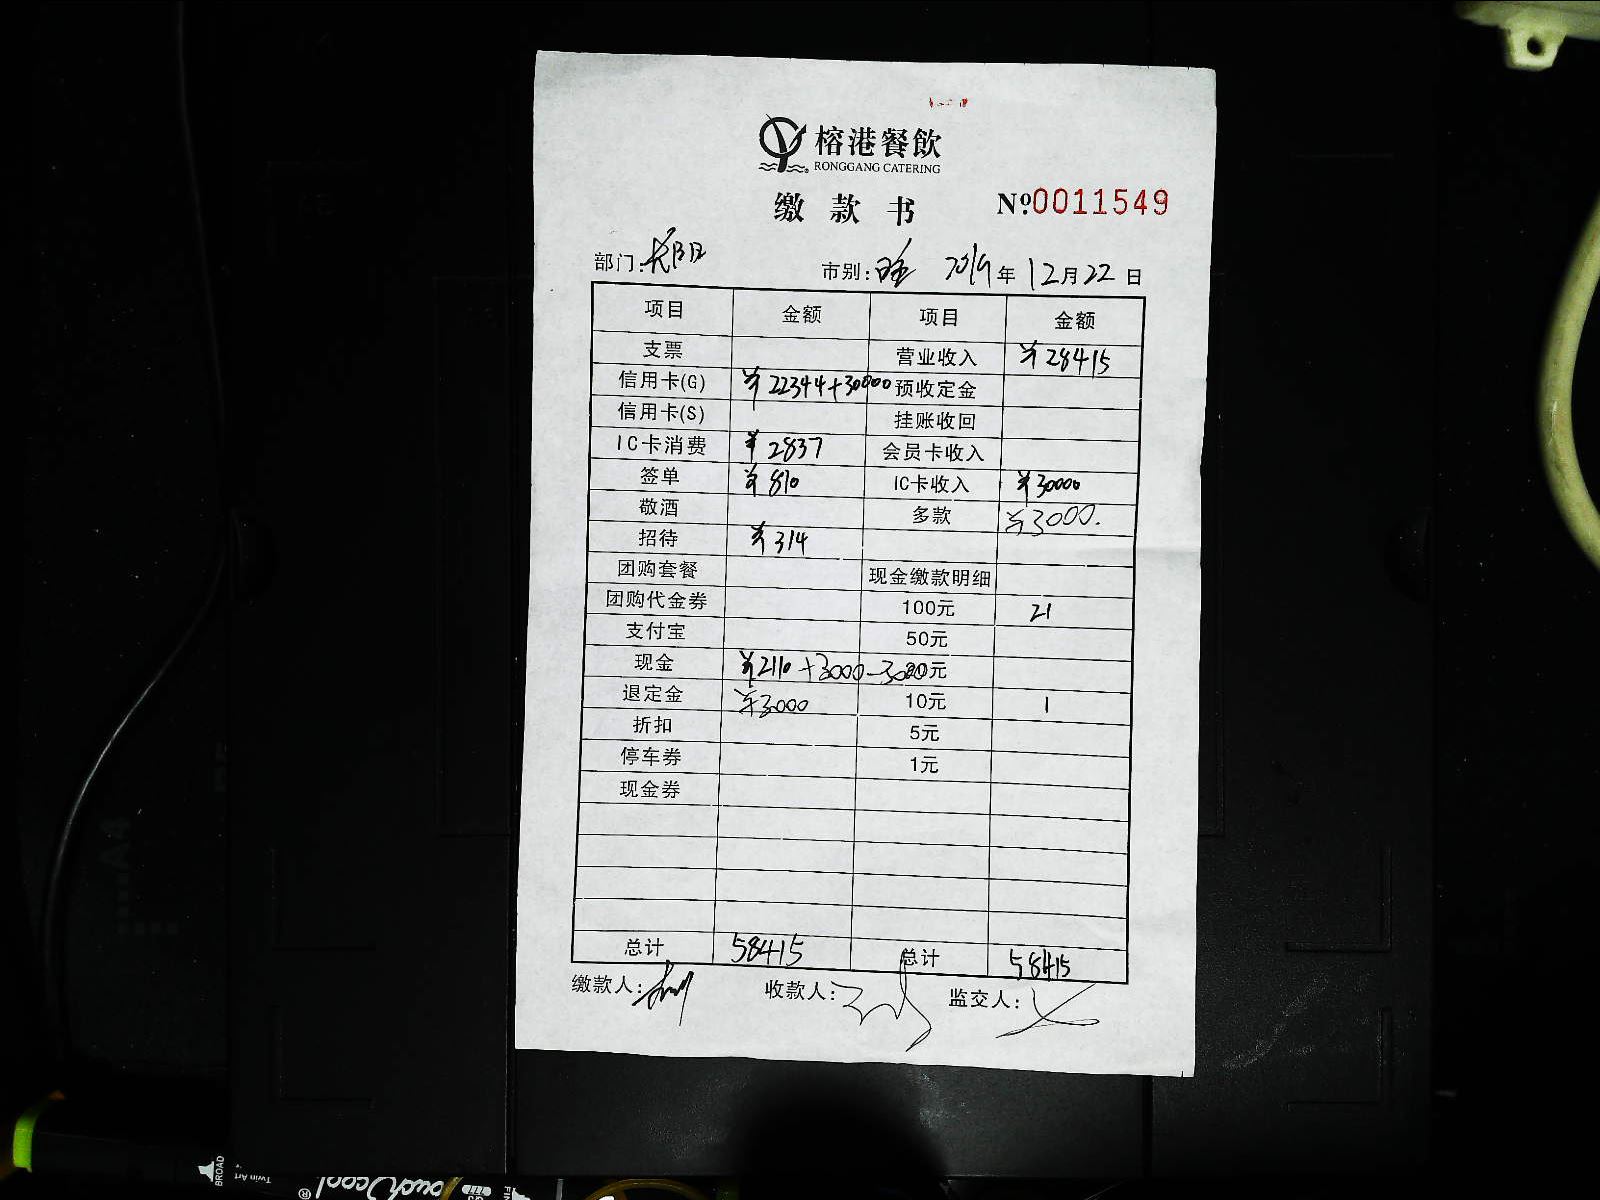 榕港餐飲
RONGGANG CATERING
缴款书 №0011549
部门: 市别: 2019年12月22日
项目 金额 项目 金额
支票 营业收入 ¥28415
信用卡(G) ¥22344+30000 预收定金
信用卡(S) 挂账收回
IC卡消费 ¥2837 会员卡收入
签单 ¥810 IC卡收入 ¥30000
敬酒 多款 ¥3000.
招待 ¥314
团购套餐 现金缴款明细
团购代金券 100元 21
支付宝 50元
现金 ¥2110+3000-3000 元
退定金 ¥3000 10元 1
折扣 5元
停车券 1元
现金券
总计 58415 总计 58415
缴款人: 收款人: 监交人:
BROAD
Twin Art
ouch cool®